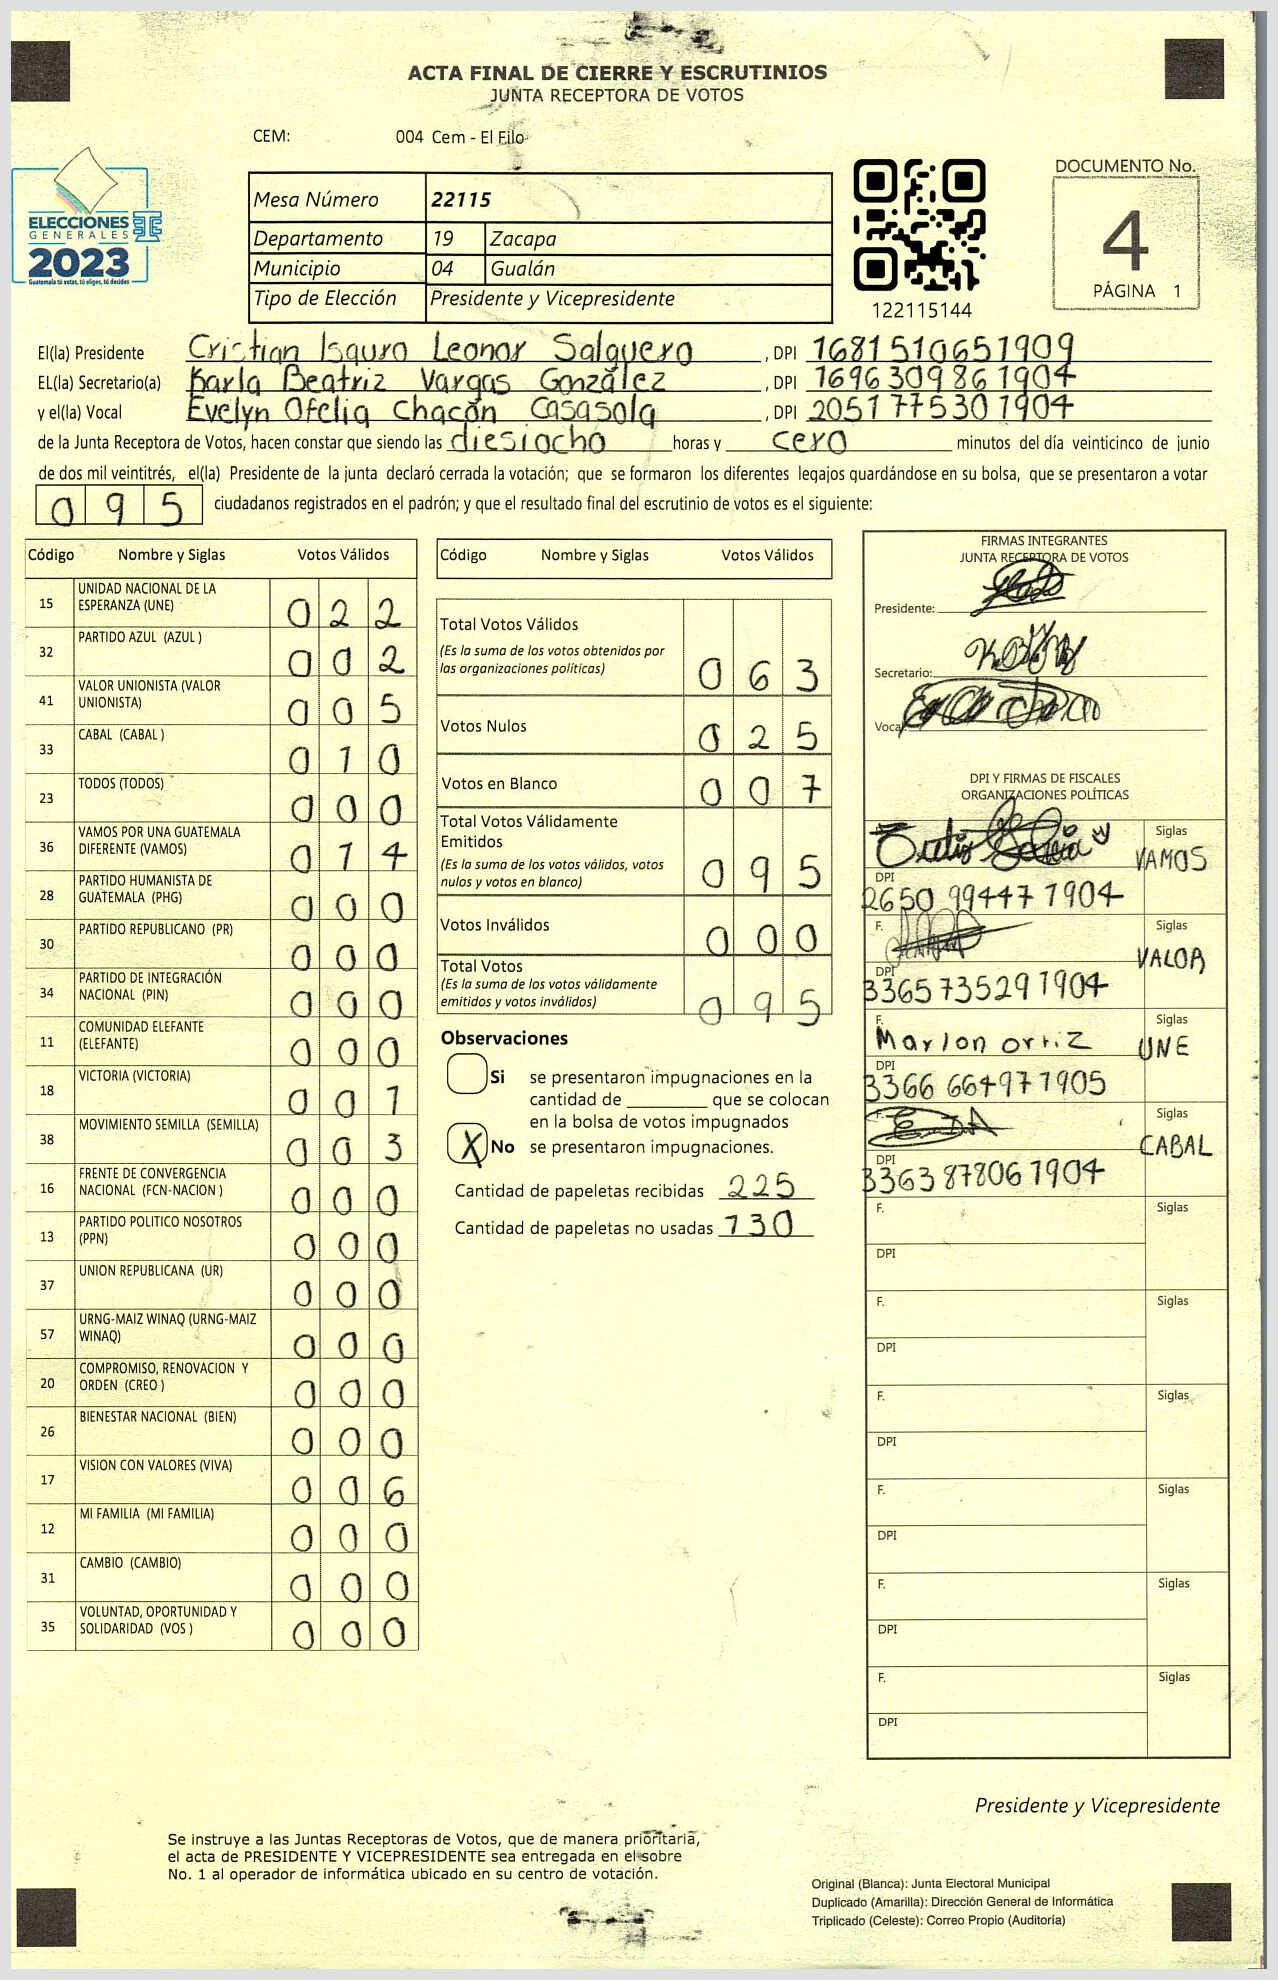 ACTA FINAL DE CIERRE Y ESCRUTINIOS
JUNTA RECEPTORA DE VOTOS
CEM: 004 Cem - El Filo
ELECCIONES
GENERALES
2023
Guatemala tú votas, tú eliges, tú decides
Mesa Número 22115
Departamento 19 Zacapa
Municipio 04 Gualán
Tipo de Elección Presidente y Vicepresidente
122115144
DOCUMENTO No.
4
PÁGINA 1
El(la) Presidente Cristian Isauro Leonor Salguero , DPI 1681510651909
EL(la) Secretario(a) Karla Beatriz Vargas González , DPI 1696309861904
y el(la) Vocal Evelyn Ofelia Chacón Casasola , DPI 2051775301904
de la Junta Receptora de Votos, hacen constar que siendo las diesiocho horas y cero minutos del día veinticinco de junio
de dos mil veintitrés, el(la) Presidente de la junta declaró cerrada la votación; que se formaron los diferentes legajos guardándose en su bolsa, que se presentaron a votar
095 ciudadanos registrados en el padrón; y que el resultado final del escrutinio de votos es el siguiente:
Código Nombre y Siglas Votos Válidos
15 UNIDAD NACIONAL DE LA
ESPERANZA (UNE) 022
32 PARTIDO AZUL (AZUL ) 002
41 VALOR UNIONISTA (VALOR
UNIONISTA) 005
33 CABAL (CABAL ) 010
23 TODOS (TODOS) 000
36 VAMOS POR UNA GUATEMALA
DIFERENTE (VAMOS) 014
28 PARTIDO HUMANISTA DE
GUATEMALA (PHG) 000
30 PARTIDO REPUBLICANO (PR) 000
34 PARTIDO DE INTEGRACIÓN
NACIONAL (PIN) 000
11 COMUNIDAD ELEFANTE
(ELEFANTE) 000
18 VICTORIA (VICTORIA) 001
38 MOVIMIENTO SEMILLA (SEMILLA) 003
16 FRENTE DE CONVERGENCIA
NACIONAL (FCN-NACION ) 000
13 PARTIDO POLITICO NOSOTROS
(PPN) 000
37 UNION REPUBLICANA (UR) 000
57 URNG-MAIZ WINAQ (URNG-MAIZ
WINAQ) 000
20 COMPROMISO, RENOVACION Y
ORDEN (CREO ) 000
26 BIENESTAR NACIONAL (BIEN) 000
17 VISION CON VALORES (VIVA) 006
12 MI FAMILIA (MI FAMILIA) 000
31 CAMBIO (CAMBIO) 000
35 VOLUNTAD, OPORTUNIDAD Y
SOLIDARIDAD (VOS ) 000
Código Nombre y Siglas Votos Válidos
Total Votos Válidos
(Es la suma de los votos obtenidos por
las organizaciones políticas) 063
Votos Nulos 025
Votos en Blanco 007
Total Votos Válidamente
Emitidos
(Es la suma de los votos válidos, votos
nulos y votos en blanco) 095
Votos Inválidos 000
Total Votos
(Es la suma de los votos válidamente
emitidos y votos inválidos) 095
Observaciones
Si se presentaron impugnaciones en la
cantidad de ________ que se colocan
en la bolsa de votos impugnados
X No se presentaron impugnaciones.
Cantidad de papeletas recibidas 225
Cantidad de papeletas no usadas 130
FIRMAS INTEGRANTES
JUNTA RECEPTORA DE VOTOS
Presidente:
Secretario:
Vocal
DPI Y FIRMAS DE FISCALES
ORGANIZACIONES POLÍTICAS
Siglas
VAMOS
DPI
2650 99447 1904
F. Siglas
VALOR
DPI
3365735291904
F. Siglas
Marlon ortiz UNE
DPI
3366 66497 1905
F. Siglas
CABAL
DPI
3363 87806 1904
F. Siglas
DPI
F. Siglas
DPI
F. Siglas
DPI
F. Siglas
DPI
F. Siglas
DPI
F. Siglas
DPI
Presidente y Vicepresidente
Se instruye a las Juntas Receptoras de Votos, que de manera prioritaria,
el acta de PRESIDENTE Y VICEPRESIDENTE sea entregada en el sobre
No. 1 al operador de informática ubicado en su centro de votación.
Original (Blanca): Junta Electoral Municipal
Duplicado (Amarilla): Dirección General de Informática
Triplicado (Celeste): Correo Propio (Auditoría)